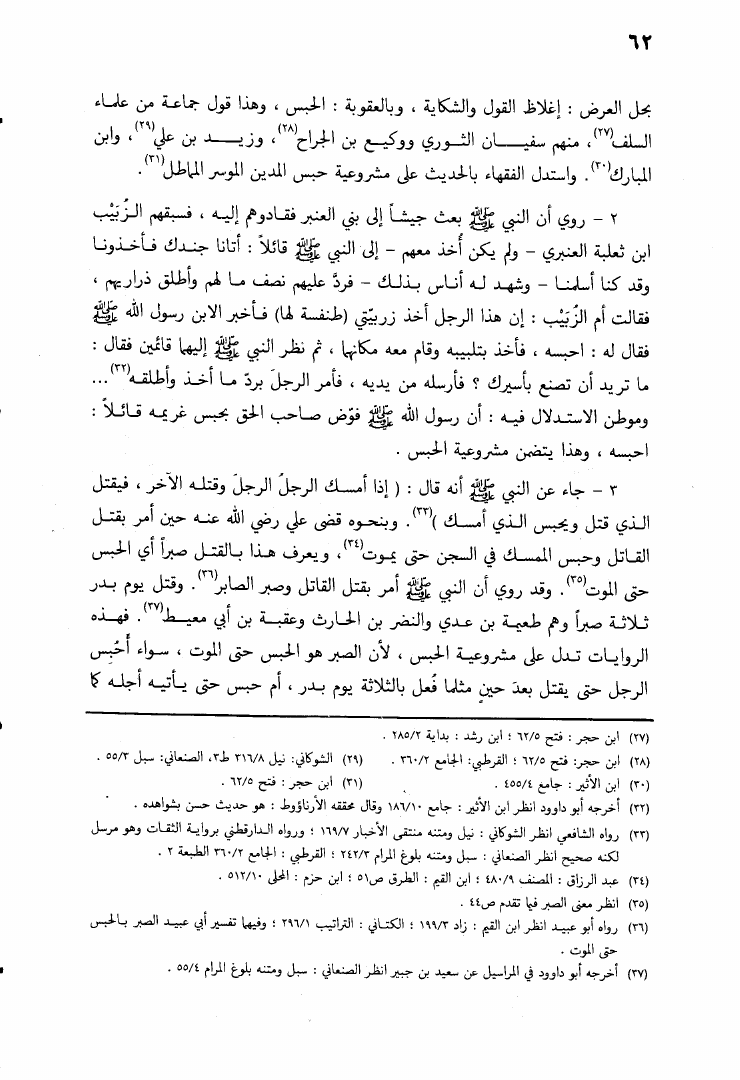 ٦٢
يحل العرض : إغلاظ القول والشكاية ، وبالعقوبة : الحبس ، وهذا قول جماعة من علماء
السلف(٢٧)، منهم سفيان الثوري ووكيع بن الجراح(٢٨)، وزيد بن علي(٢٩)، وابن
المبارك(٣٠). واستدل الفقهاء بالحديث على مشروعية حبس المدين الموسر المماطل(٣١).
٢ - روي أن النبي ﷺ بعث جيشاً إلى بني العنبر فقادوهم إليه ، فسبقهم الزُبَيْب
ابن ثعلبة العنبري - ولم يكن أُخذ معهم - إلى النبي ﷺ قائلاً : أتانا جندك فأخذونا
وقد كنا أسلمنا - وشهد له أناس بذلك - فردَّ عليهم نصف ما لهم وأطلق ذراريهم ،
فقالت أم الزُبَيْب : إن هذا الرجل أخذ زربيّتي (طنفسة لها) فأخبر الابن رسول الله ﷺ
فقال له : احبسه ، فأخذ بتلبيبه وقام معه مكانها ، ثم نظر النبي ﷺ إليها قائمين فقال :
ما تريد أن تصنع بأسيرك ؟ فأرسله من يديه ، فأمر الرجلَ بردّ ما أخذ وأطلقه(٣٢)...
وموطن الاستدلال فيه : أن رسول الله ﷺ فوّض صاحب الحق بحبس غريمه قائلاً :
احبسه ، وهذا يتضمن مشروعية الحبس .
٣ - جاء عن النبي ﷺ أنه قال : ( إذا أمسك الرجلُ الرجلَ وقتله الآخر ، فيقتل
الذي قتل ويحبس الذي أمسك )(٣٣). وبنحوه قضى علي رضي الله عنه حين أمر بقتل
القاتل وحبس الممسك في السجن حتى يموت(٣٤)، ويعرف هذا بالقتل صبراً أي الحبس
حتى الموت(٣٥). وقد روي أن النبي ﷺ أمر بقتل القاتل وصبر الصابر(٣٦). وقتل يوم بدر
ثلاثة صبراً وهم طعيمة بن عدي والنضر بن الحارث وعقبة بن أبي معيط(٣٧). فهذه
الروايات تدل على مشروعية الحبس ، لأن الصبر هو الحبس حتى الموت ، سواء أَحُبس
الرجل حتى يقتل بعدَ حينٍ مثلما فُعل بالثلاثة يوم بدر ، أم حبس حتى يأتيه أجله كما
(٢٧) ابن حجر : فتح ٦٢/٥ ؛ ابن رشد : بداية ٢٨٥/٢ .
(٢٨) ابن حجر: فتح ٦٢/٥ ؛ القرطبي: الجامع ٣٦٠/٢ . (٢٩) الشوكاني: نيل ٣١٦/٨ ط٣، الصنعاني: سبل ٥٥/٣ .
(٣٠) ابن الأثير : جامع ٤٥٥/٤ . (٣١) ابن حجر : فتح ٦٢/٥ .
(٣٢) أخرجه أبو داوود انظر ابن الأثير : جامع ١٨٦/١٠ وقال محققه الأرناؤوط : هو حديث حسن بشواهده .
(٣٣) رواه الشافعي انظر الشوكاني : نيل ومتنه منتقى الأخبار ١٦٩/٧ ؛ ورواه الدارقطني برواية الثقات وهو مرسل
لكنه صحيح انظر الصنعاني : سبل ومتنه بلوغ المرام ٢٤٢/٣ ؛ القرطبي : الجامع ٣٦٠/٢ الطبعة ٢ .
(٣٤) عبد الرزاق : المصنف ٤٨٠/٩ ؛ ابن القيم : الطرق ص٥١ ؛ ابن حزم : المحلى ٥١٢/١٠ .
(٣٥) انظر معنى الصبر فيما تقدم ص٤٤ .
(٣٦) رواه أبو عبيد انظر ابن القيم : زاد ١٩٩/٣ ؛ الكتاني : التراتيب ٢٩٦/١ ؛ وفيها تفسير أبي عبيد الصبر بالحبس
حتى الموت .
(٣٧) أخرجه أبو داوود في المراسيل عن سعيد بن جبير انظر الصنعاني : سبل ومتنه بلوغ المرام ٥٥/٤ .